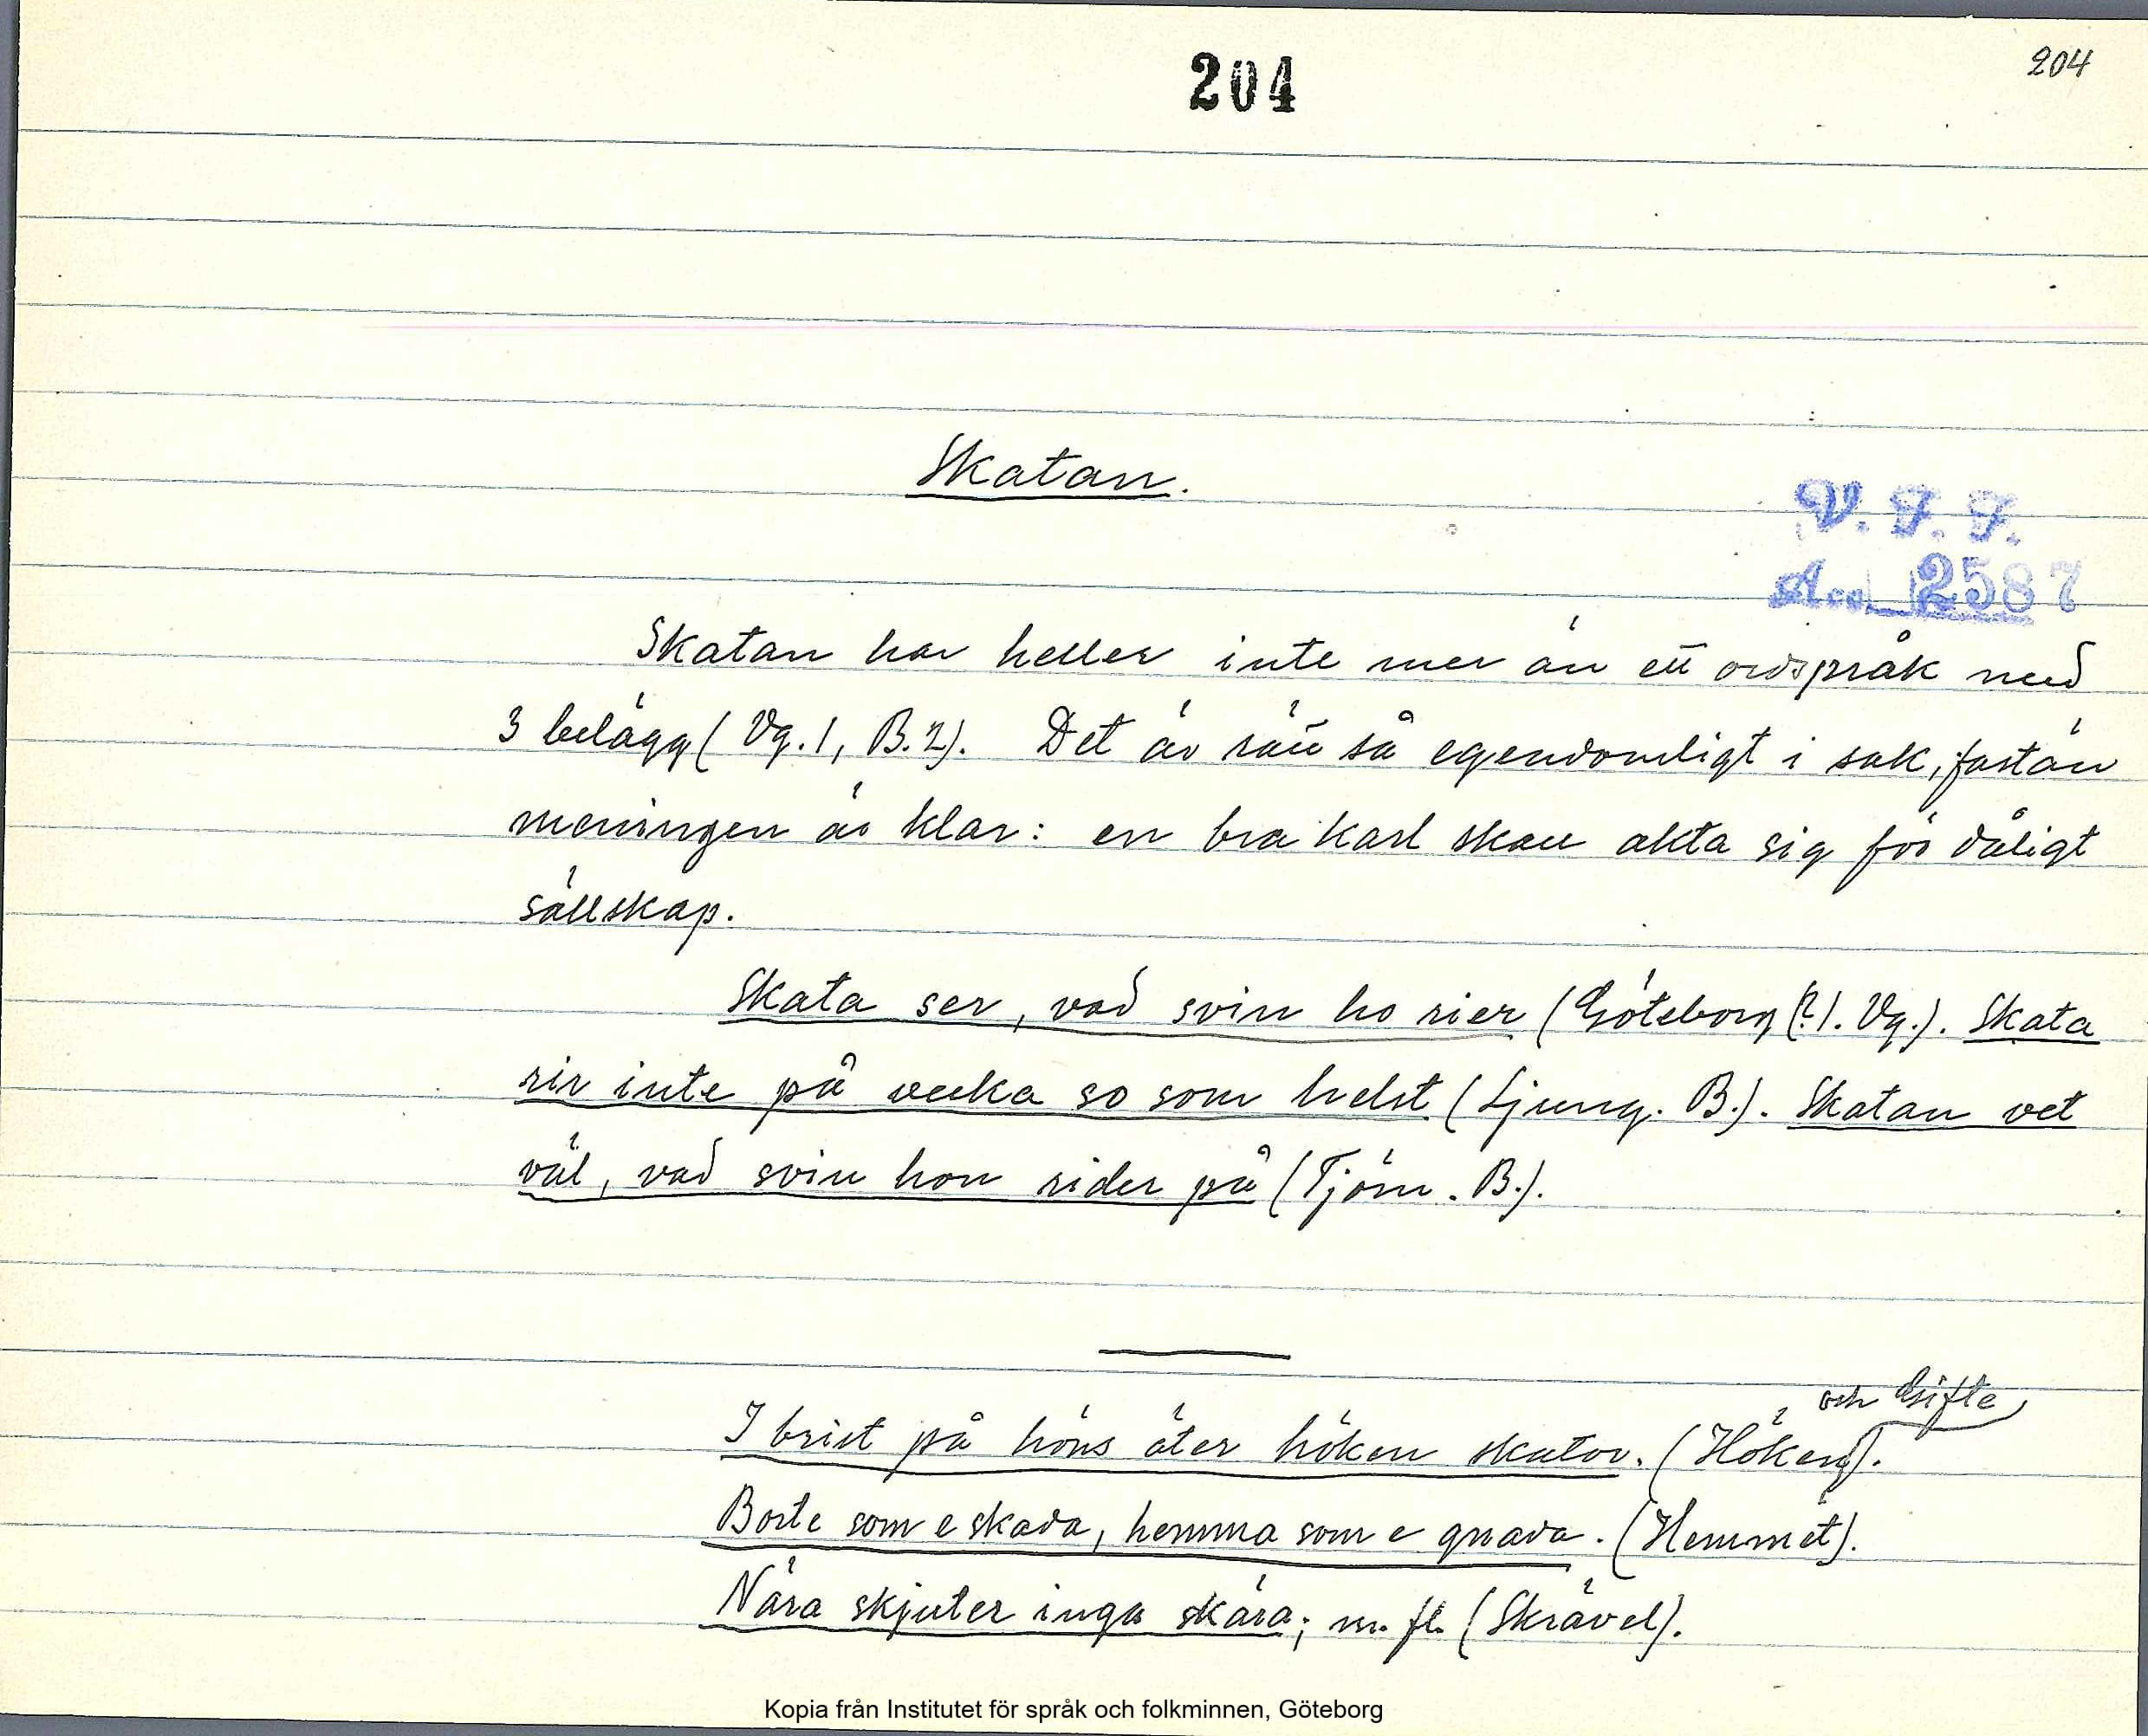 204
204
Skatan.
V. F. F.
Acc. 2587
Skatan har heller inte mer än ett ordspråk med
3 belägg (Vg. 1, B. 2). Det är rätt så egendomligt i sak, fastän
meningen är klar: en bra karl skall akta sig för dåligt
sällskap.
Skata ser, vad svin ho rier (Göteborg (?). Vg.). Skata
rir inte på vecka so som helst (Ljung. B.). Skatan vet
väl, vad svin hon rider på (Tjörn. B.).
och Gifte
I brist på höns äter höken skator. (Höken).
Borte som e skada, hemma som e gnava. (Hemmet).
Nära skjuter inga skära; m. fl. (Skrävel).
Kopia från Institutet för språk och folkminnen, Göteborg